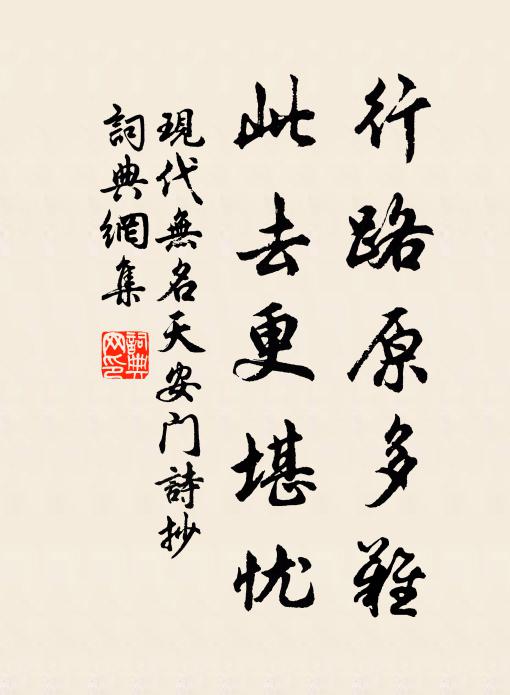 行路原多難
此去更堪忧
現代無名天安门詩抄
詞典網集
詞典网印